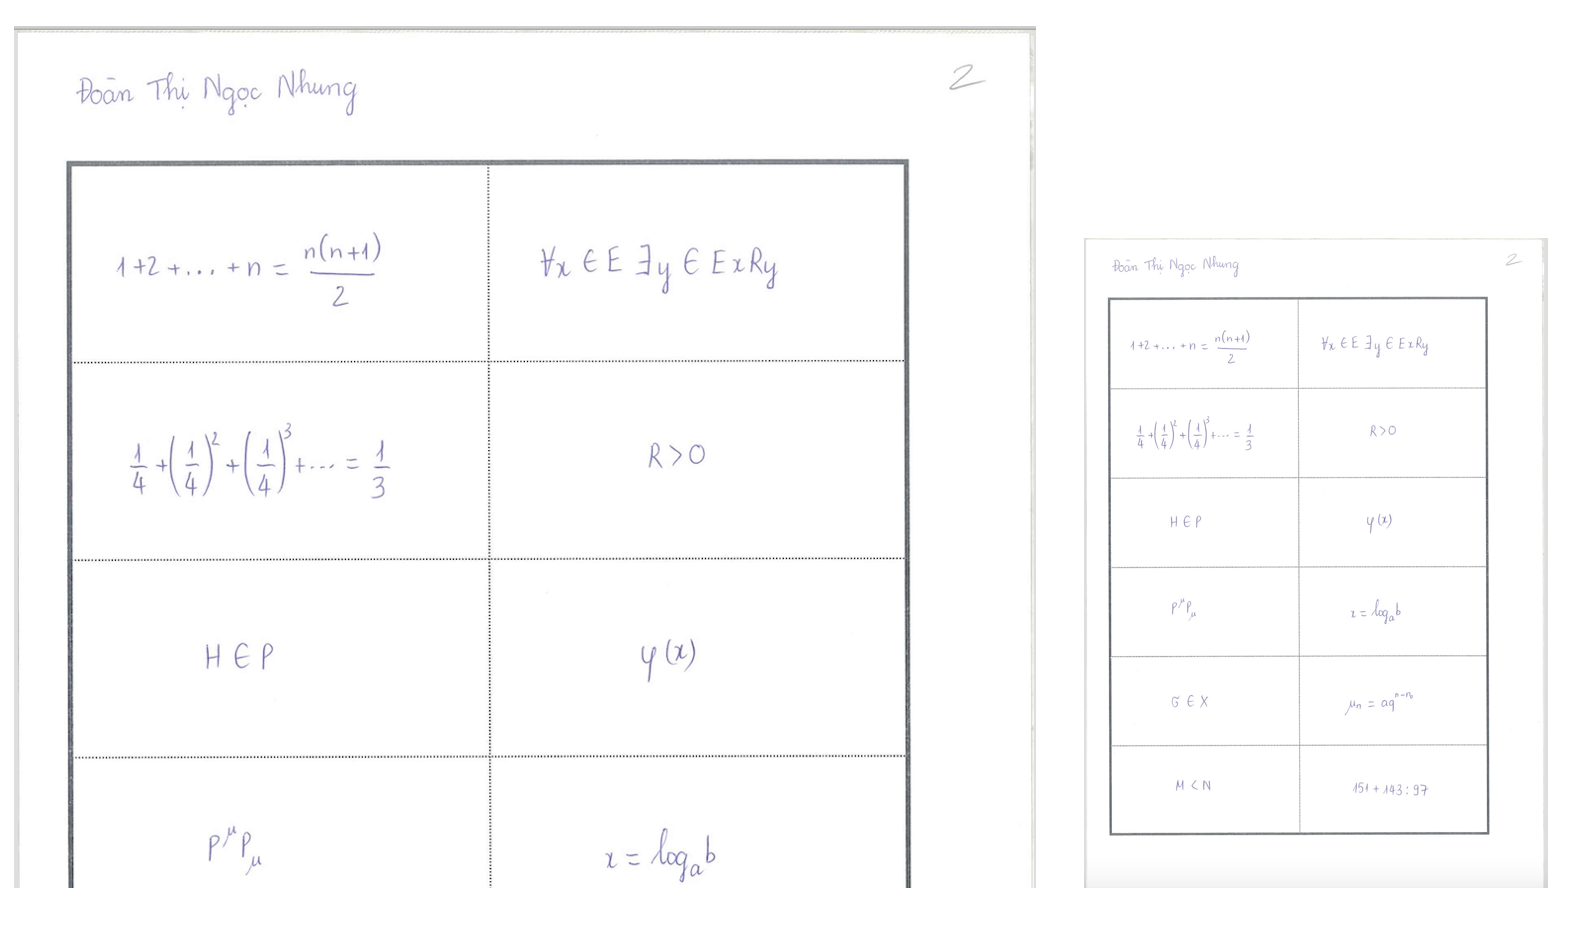 Đoàn Thị Ngọc Nhung 2
1+2+...+n = n(n+1)/2 ∀x ∈ E ∃y ∈ E xRy
1/4 + (1/4)^2 + (1/4)^3 + ... = 1/3 R > 0
H ∈ P φ(x)
P^μ P_μ x = log_a b
Đoàn Thị Ngọc Nhung 2
1+2+...+n = n(n+1)/2 ∀x ∈ E ∃y ∈ E xRy
1/4 + (1/4)^2 + (1/4)^3 + ... = 1/3 R > 0
H ∈ P φ(x)
P^μ P_μ x = log_a b
σ ∈ X
M < N 151 + 143 : 97